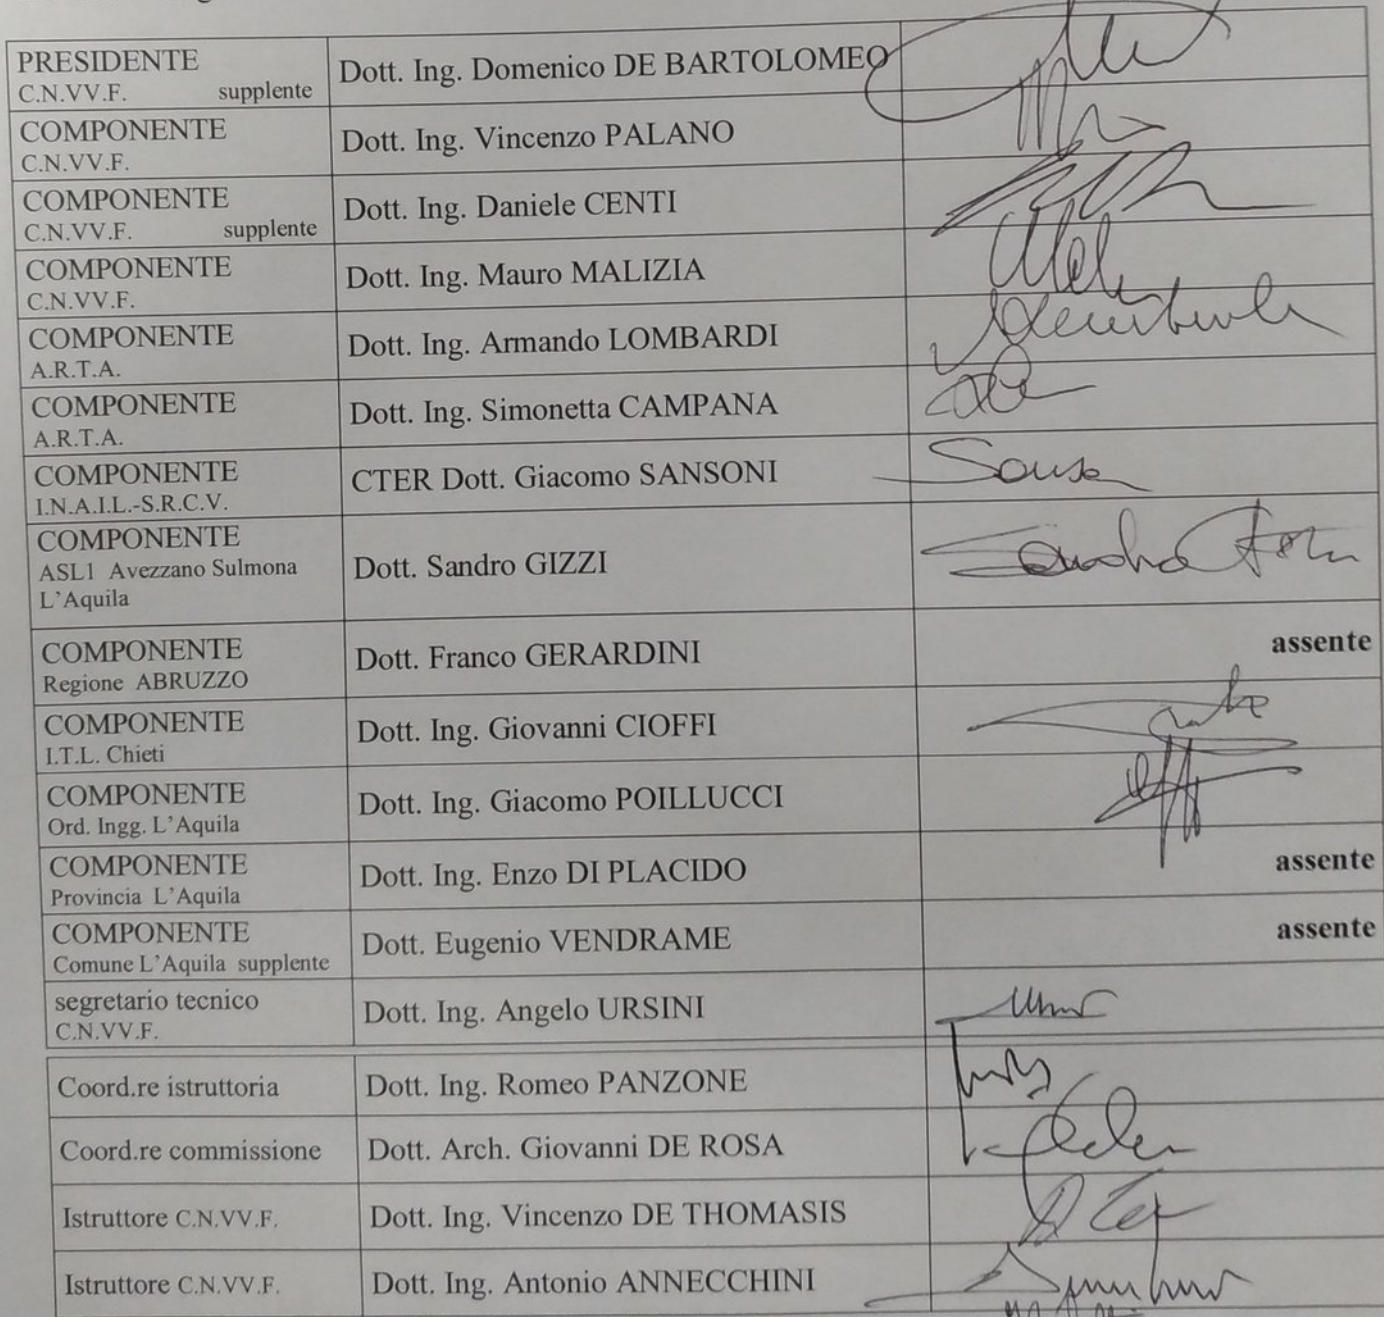 PRESIDENTE
C.N.VV.F. supplente
Dott. Ing. Domenico DE BARTOLOMEO
COMPONENTE
C.N.VV.F.
Dott. Ing. Vincenzo PALANO
COMPONENTE
C.N.VV.F. supplente
Dott. Ing. Daniele CENTI
COMPONENTE
C.N.VV.F.
Dott. Ing. Mauro MALIZIA
COMPONENTE
A.R.T.A.
Dott. Ing. Armando LOMBARDI
COMPONENTE
A.R.T.A.
Dott. Ing. Simonetta CAMPANA
COMPONENTE
I.N.A.I.L.-S.R.C.V.
CTER Dott. Giacomo SANSONI
COMPONENTE
ASL1 Avezzano Sulmona
L'Aquila
Dott. Sandro GIZZI
COMPONENTE
Regione ABRUZZO
Dott. Franco GERARDINI
assente
COMPONENTE
I.T.L. Chieti
Dott. Ing. Giovanni CIOFFI
COMPONENTE
Ord. Ingg. L'Aquila
Dott. Ing. Giacomo POILLUCCI
COMPONENTE
Provincia L'Aquila
Dott. Ing. Enzo DI PLACIDO
assente
COMPONENTE
Comune L'Aquila supplente
Dott. Eugenio VENDRAME
assente
segretario tecnico
C.N.VV.F.
Dott. Ing. Angelo URSINI
Coord.re istruttoria
Dott. Ing. Romeo PANZONE
Coord.re commissione
Dott. Arch. Giovanni DE ROSA
Istruttore C.N.VV.F.
Dott. Ing. Vincenzo DE THOMASIS
Istruttore C.N.VV.F.
Dott. Ing. Antonio ANNECCHINI